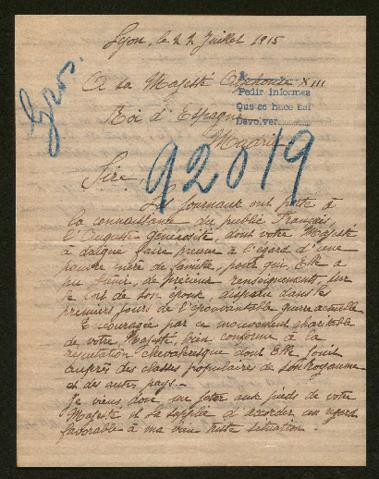 Lyon, le 22 Juillet 1915
A sa Majesté Alphonse XIII
Pedir informes
Que se hace así
Devolver
Roi d'Espagne
Madrid
92019
Sire
Les journaux ont porté à
la connaissance du public Français,
l'Auguste générosité, dont votre Majesté
a daigné faire preuve à l'égard d'une
pauvre mère de famille, pour qui, Elle a
pu fournir, de précieux renseignements, sur
le sort de son époux, disparu dans les
premiers jours de l'épouvantable guerre actuelle
Encouragée par ce mouvement charitable
de votre Majesté, bien conforme à la
réputation chevaleresque dont Elle jouit
auprès des classes populaires de son Royaume
et des autres pays.
Je viens donc me jeter aux pieds de votre
Majesté et la supplie d'accorder un regard
favorable à ma bien triste situation.